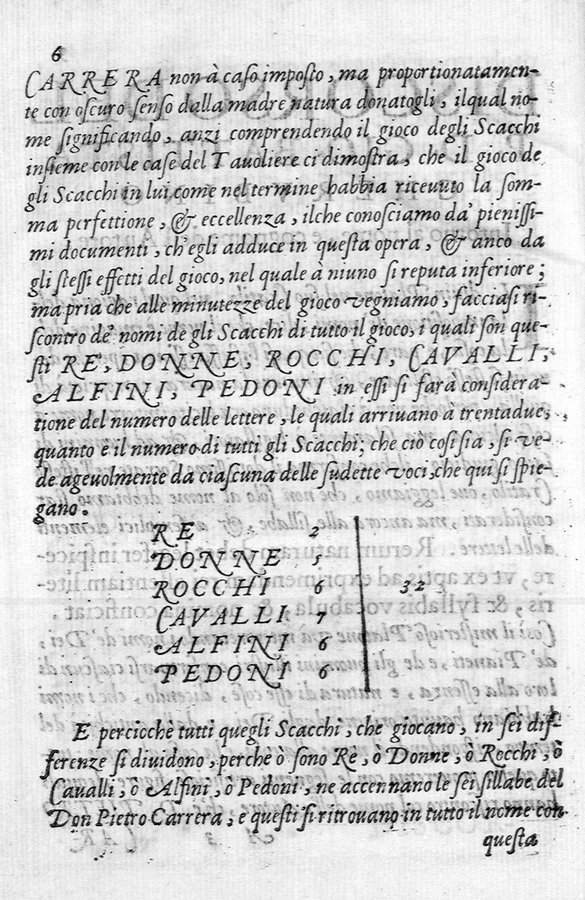 6
CARRERA non à caso imposto, ma proportionatamen-
te con oscuro senso dalla madre natura donatogli, ilqual no-
me significando, anzi comprendendo il gioco degli Scacchi
insieme con le case del Tauoliere ci dimostra, che il gioco de
gli Scacchi in lui come nel termine habbia riceuuto la som-
ma perfettione, & eccellenza, ilche conosciamo da' pienissi-
mi documenti, ch'egli adduce in questa opera, & anco da
gli stessi effetti del gioco, nel quale à niuno si reputa inferiore;
ma pria che alle minutezze del gioco vegniamo, facciasi ri-
scontro de' nomi de gli Scacchi di tutto il gioco, i quali son que-
sti RE, DONNE, ROCCHI, CAVALLI,
ALFINI, PEDONI in essi si farà considera-
tione del numero delle lettere, le quali arriuano à trentadue,
quanto è il numero di tutti gli Scacchi; che ciò cosi sia, si ve-
de ageuolmente da ciascuna delle sudette voci, che qui si spie-
gano.
RE 2
DONNE 5
ROCCHI 6 32
CAVALLI 7
ALFINI 6
PEDONI 6
E percioche tutti quegli Scacchi, che giocano, in sei dif-
ferenze si diuidono, perche ò sono Re, ò Donne, ò Rocchi, ò
Caualli, ò Alfini, ò Pedoni, ne accennano le sei sillabe del
Don Pietro Carrera, e questi si ritrouano in tutto il nome con
questa